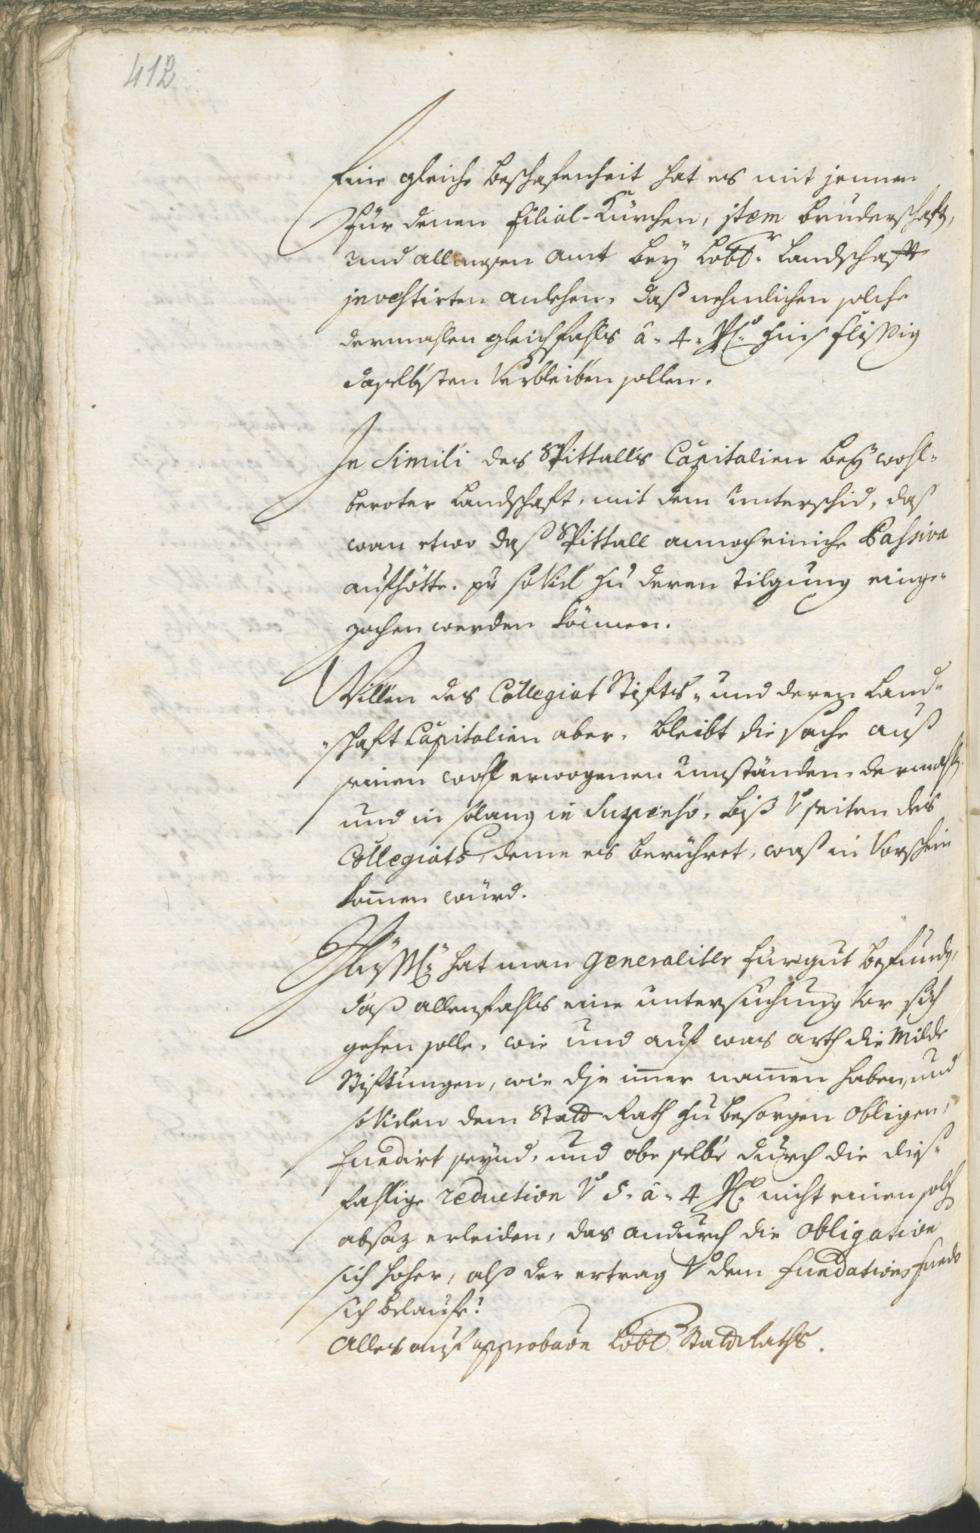 412
Eine gleiche Beschafenheit hat es mit jennen
Für denen Filial-Kürchen, item Bruderschaft,
und allmosen Amt bey Löbl. Landschafft
jnvestirten anlehen, daß nehmlichen solche
dermahlen gleichfahls â 4 Pf. Zins flissig
daselbsten verbleiben sollen.
In Simili des Spittalls Capitalien bey wohl-
beroter Landschaft, mit dem Unterschid, daß
wan etwo daß Spittall annoch einiche Passiva
aufhötte, so vil zu deren Tilgung einge-
zochen werden können.
Willen des Collegiat Stifts, und deren Land-
schaft Capitalien aber, bleibt die sache auß
seinen wohl erwogenen umständen dermahl
und in solang in Suspenso, biß v seiten des
Collegiats, deme es berühret, waß in Vorschein
komen würd.
hat man generaliter für gut befunden,
daß allenfahls eine untersuchung vor sich
gehen solle, wie und auf was arth die Milde
Stiftungen, wie die imer namen haben, und
so vilen dem Stadt Rath zu besorgen obligen,
fundirt seynd, und obe selbe durch die dies-
fahlige reduction v 5 â 4 Pf. nicht einen solch
absaz erleiden, das andurch die obligation
sich höher, als der ertrag v dem fundations fundo
sich belaufe?
Alles auf approbaon Löbl StadtRaths.